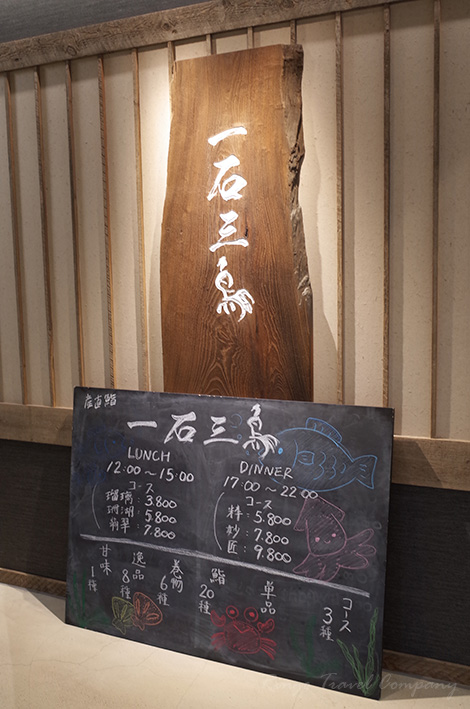 一石三鳥
産直鮨
一石三鳥
LUNCH
12:00～15:00
コース
瑠璃:3.800
珊瑚:5.800
翡翠:7.800
DINNER
17:00～22:00
コース
:5.800
:7.800
匠:9.800
コース
3種
単品
鮨
20種
巻物
6種
逸品
8種
甘味
1種
Travel Company